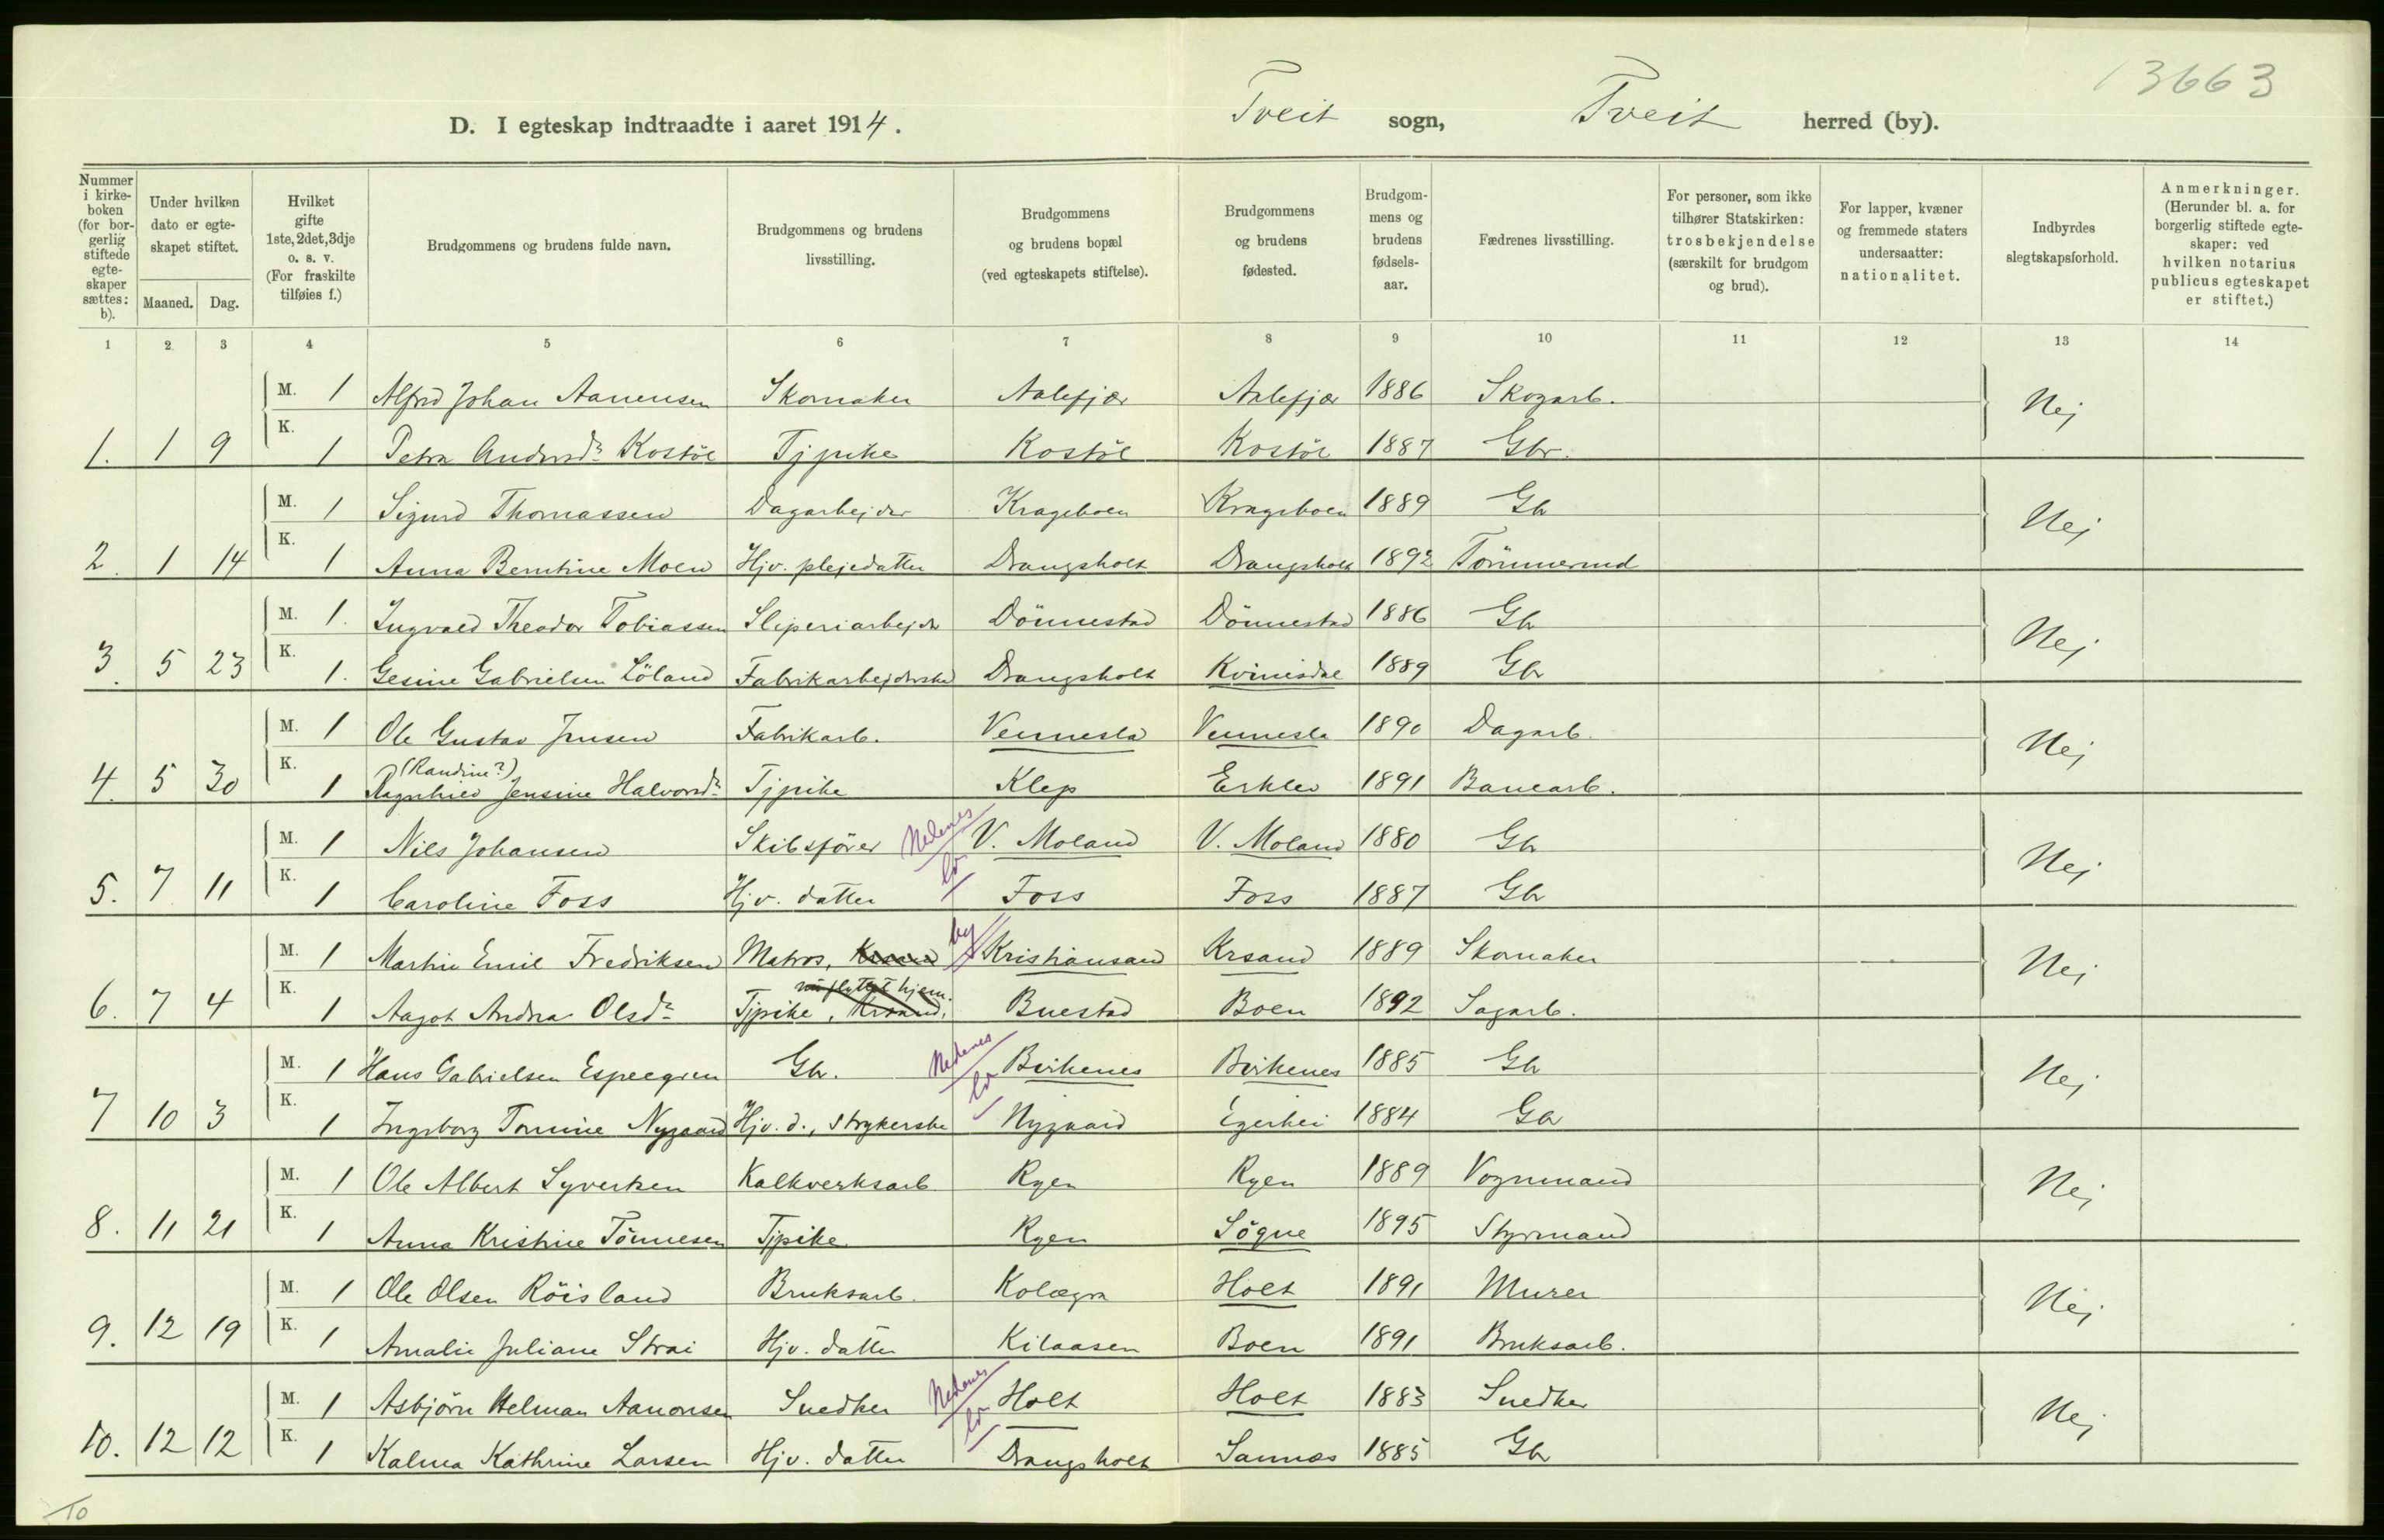 13663
D. I egteskap indtraadte i aaret 1914. Tveit sogn, Tveit herred (by).
Nummer i kirke-boken (for bor-gerlig stiftede egte-skaper sættes: b).
Under hvilken dato er egte-skapet stiftet.
Maaned. Dag.
Hvilket gifte 1ste, 2det, 3dje o. s. v. (For fraskilte tilføies f.)
Brudgommens og brudens fulde navn.
Brudgommens og brudens livsstilling.
Brudgommens og brudens bopæl (ved egteskapets stiftelse).
Brudgommens og brudens fødested.
Brudgom-mens og brudens fødsels-aar.
Fædrenes livsstilling.
For personer, som ikke tilhører Statskirken: trosbekjendelse (særskilt for brudgom og brud).
For lapper, kvæner og fremmede staters undersaatter: nationalitet.
Indbyrdes slegtskapsforhold.
Anmerkninger. (Herunder bl. a. for borgerlig stiftede egte-skaper: ved hvilken notarius publicus egteskapet er stiftet.)
1 2 3 4 5 6 7 8 9 10 11 12 13 14
M. 1 Alfred Johan Aanensen Skomaker Aalefjær Aalefjær 1886 Skogarb. Nej
1. 1 9 K. 1 Petra Andersdr Kostöl Tjpike Kostöl Kostöl 1887 Gbr.
M. 1 Sigurd Thomassen Dagarbejder Krageboen Krageboen 1889 Gb Nej
2. 1 14 K. 1 Anna Berntine Moen Hjv. plejedatter Drangsholt Drangsholt 1892 Tömmermd
M. 1. Ingvald Theodor Tobiassen Sliperiarbejder Dönnestad Dönnestad 1886 Gb Nej
3. 5 23 K. 1. Gesine Gabrielsen Löland Fabrikarbejderske Drangsholt Kvinesdal 1889 Gb
M. 1 Ole Gustav Jensen Fabrikarb. Vennesla Vennesla 1890 Dagarb. Nej
(Randine?)
4. 5 30 K. 1 Ragnhild Jensine Halvorsdr Tjpike Klep Erklev 1891 Banearb.
M. 1 Nils Johansen Skibsförer Nedenes V. Moland V. Moland 1880 Gb Nej
5. 7 11 K. 1 Caroline Foss Hjv. datter Foss Foss 1887 Gb
M. 1 Martin Emil Fredriksen Matros, Krsand by Kristiansand Krsand 1889 Skomaker Nej
nu flyttet hjem.
6. 7 4 K. 1 Aagot Andrea Olsdr Tjpike, Krsand. Buestad Boen 1892 Sagarb.
M. 1 Hans Gabrielsen Espegren Gb. Nedenes Birkenes Birkenes 1885 Gb Nej
7 10 3 K. 1 Ingeborg Tomine Nygaard Hjv. d., strykerske Nygaard Egerhei 1884 Gb
M. 1 Ole Albert Syvertsen Kalkverksarb Ryen Ryen 1889 Vognmand Nej
8. 11 21 K. 1 Anna Kristine Tönnesen Tjpike Ryen Sögne 1895 Styrmand
M. 1 Ole Olsen Röisland Bruksarb. Kolægra Holt 1891 Murer Nej
9. 12 19 K. 1 Amalie Juliane Strai Hjv. datter Kilaasen Boen 1891 Bruksarb.
M. 1 Asbjörn Helman Aanonsen Snedker Nedenes Holt Holt 1883 Snedker Nej
10. 12 12 K. 1 Kalma Kathrine Larsen Hjv. datter Drangsholt Sannæs 1885 Gb
10